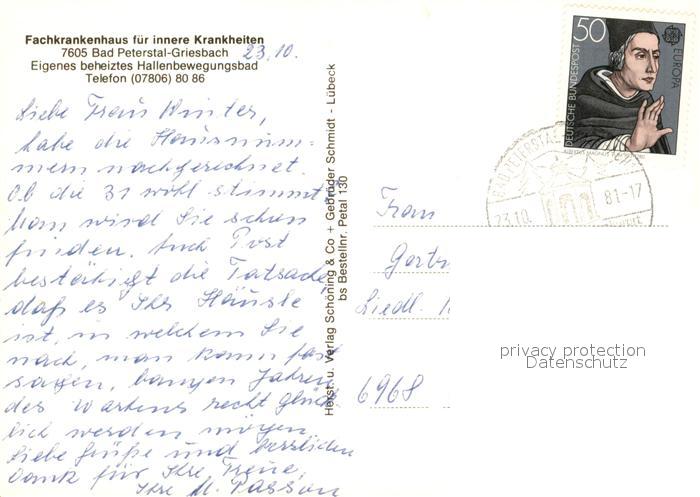 Fachkrankenhaus für innere Krankheiten
7605 Bad Peterstal-Griesbach
Eigenes beheiztes Hallenbewegungsbad
Telefon (07806) 80 86
23.10.
Liebe Frau Winter,
habe die Hausnum-
mern nachgerechnet.
Ob die 31 wohl stimmt?
Man wird Sie schon
finden. Auch Post
bestätigt die Tatsache,
daß es Ihr Häusle
ist, in welchem Sie
nach, man kann fast
sagen, bangen Jahren
des Wartens recht glück-
lich werden mögen.
Liebe Grüße und herzlichen
Dank für Ihre Treue,
Ihre M. Passon
Herst. u. Verlag Schöning & Co + Gebrüder Schmidt - Lübeck
bs Bestellnr. Petal 130
50
DEUTSCHE BUNDESPOST
EUROPA
ALBERTUS MAGNUS
BAD PETERSTAL
23.10.
81-17
Frau
Liedl.
6968
privacy protection
Datenschutz